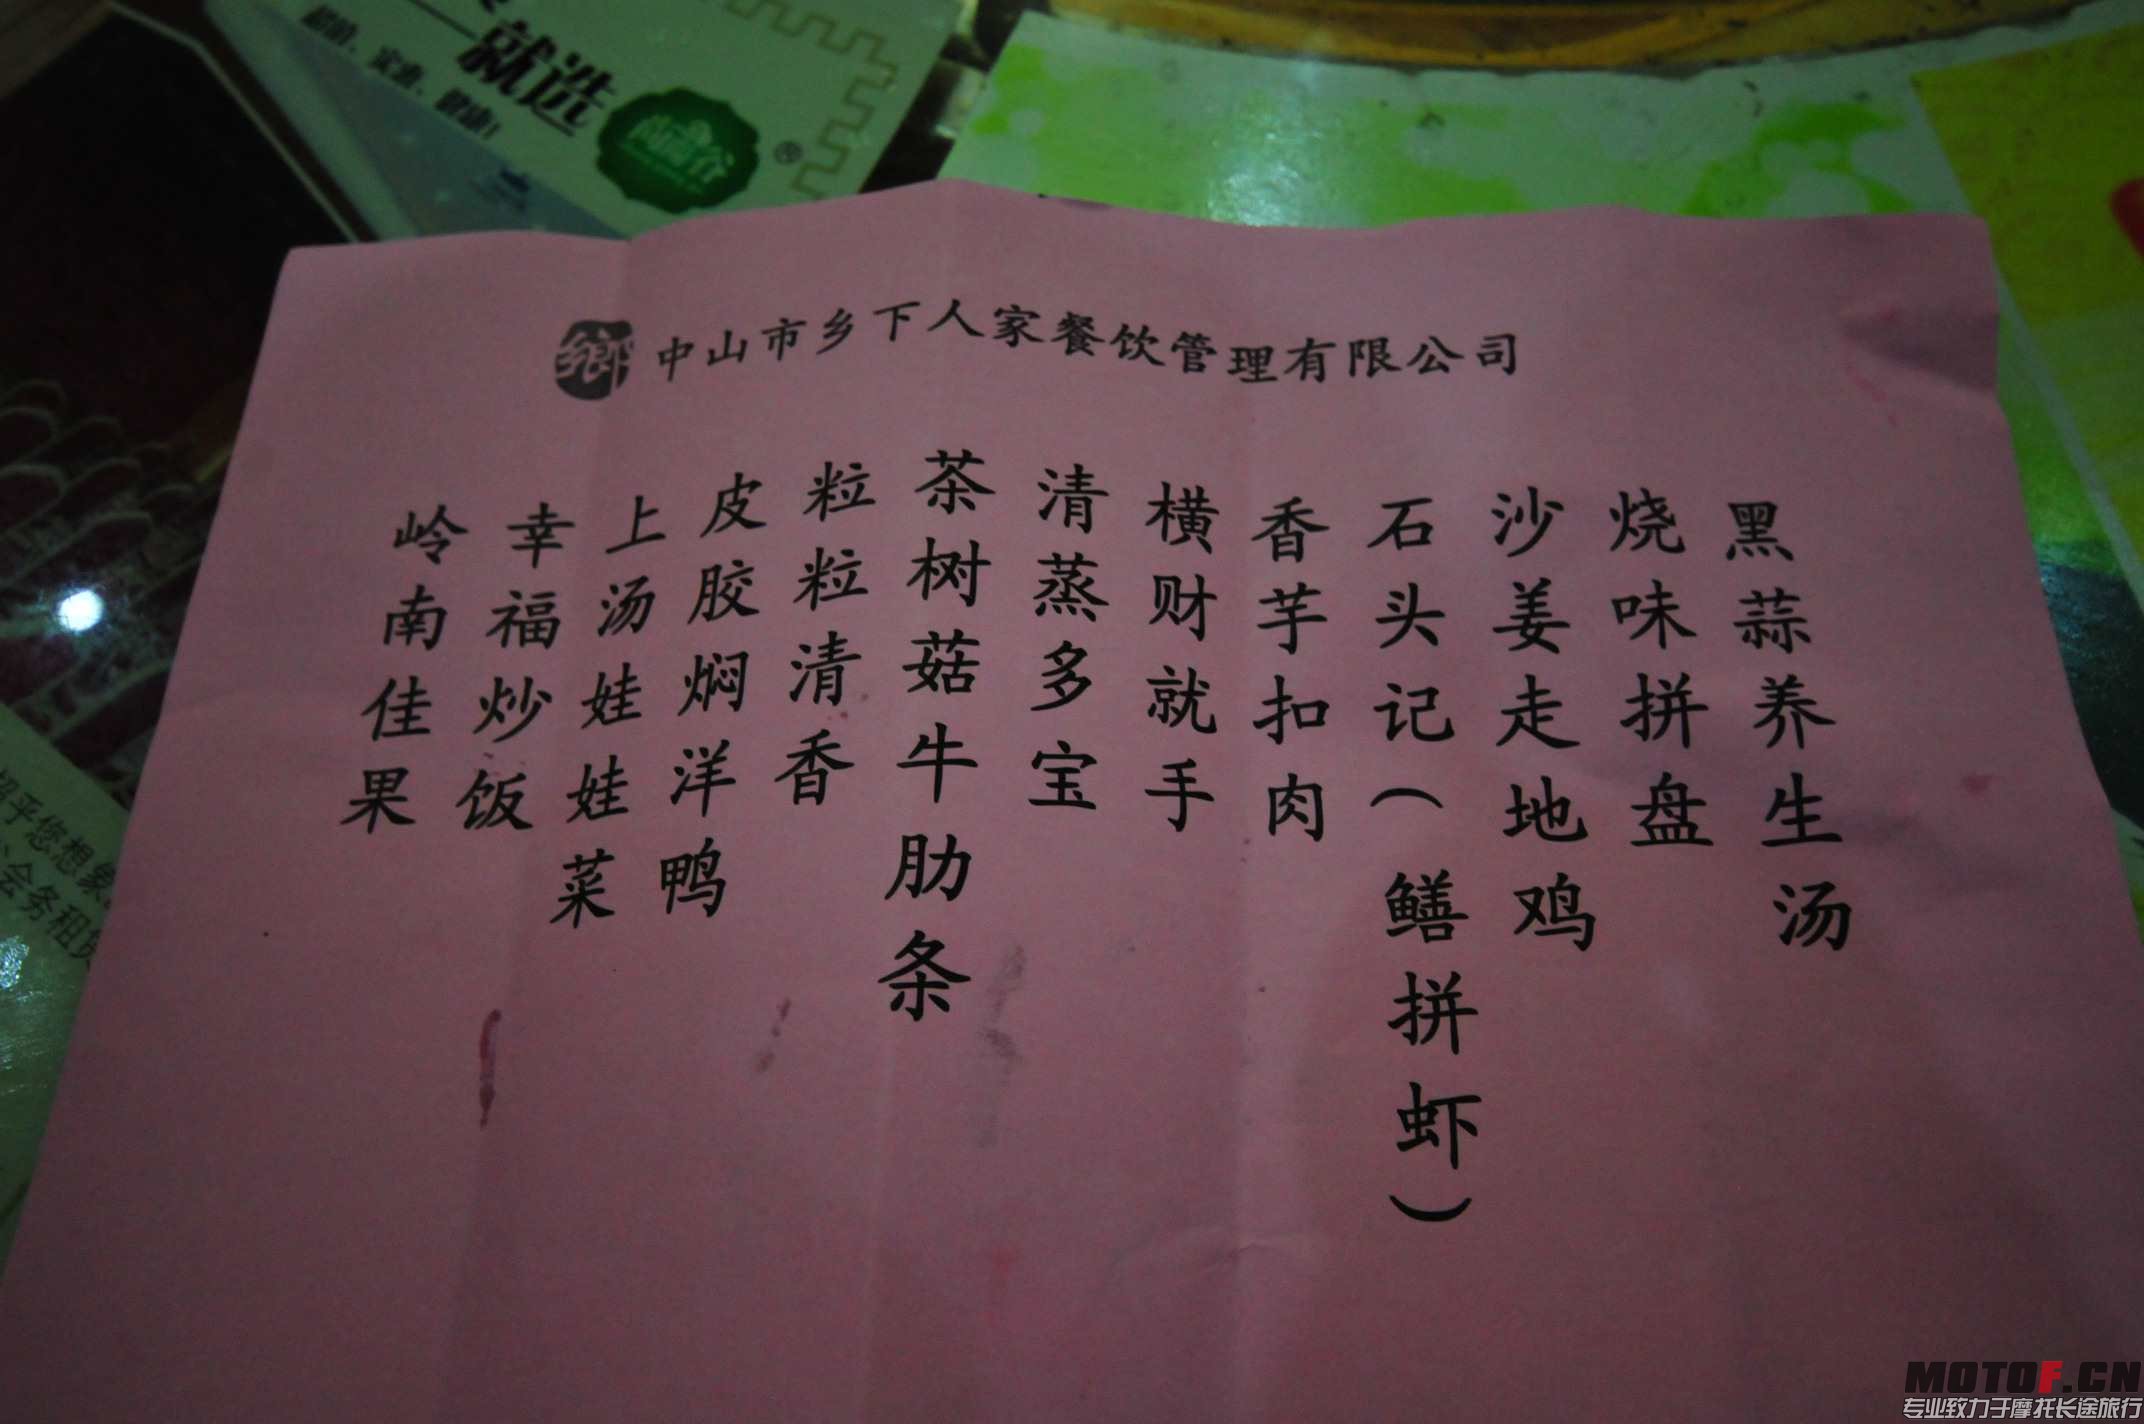 就选
中山市乡下人家餐饮管理有限公司
黑蒜养生汤
烧味拼盘
沙姜走地鸡
石头记(鳝拼虾)
香芋扣肉
横财就手
清蒸多宝
茶树菇牛肋条
粒粒清香
皮胶焖洋鸭
上汤娃娃菜
幸福炒饭
岭南佳果
乎您想象
会务租赁
MOTOF.CN
专业致力于摩托长途旅行